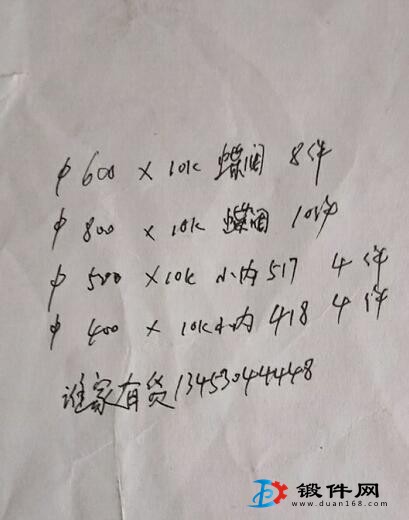 φ600 × 10K 蝶阀 8件
φ800 × 10K 蝶阀 10件
φ500 × 10K 小内517 4件
φ400 × 10K小内418 4件
谁家有货13453044448
锻件网
www.duan168.com